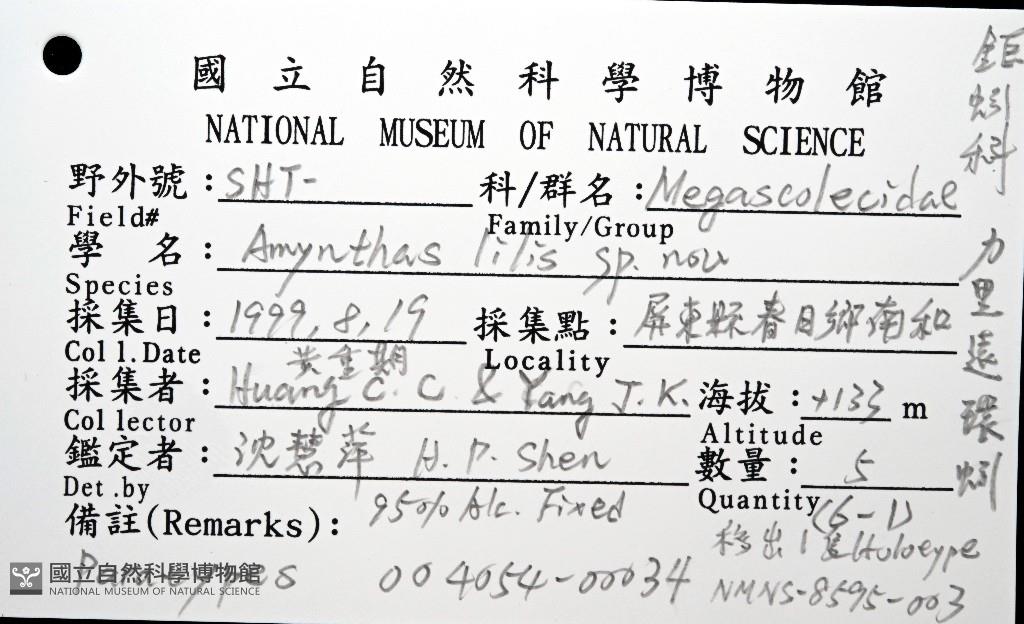 國立自然科學博物館
NATIONAL MUSEUM OF NATURAL SCIENCE
野外號:SHT- 科/群名:Megascolecidae
Field# Family/Group
學 名:Amynthas lilis sp. nov
Species
採集日:1999,8,19 採集點:屏東縣春日鄉南和
Coll.Date Locality
採集者:Huang C. C. & Yang J.K. 海拔:+133 m
Collector Altitude
鑑定者:沈慧萍 H. P. Shen 數量:5
Det.by Quantity (6-1)
備註(Remarks): 95% Alc. Fixed
移出1隻Holotype
Paratypes 004054-00034 NMNS-8595-003
國立自然科學博物館
NATIONAL MUSEUM OF NATURAL SCIENCE
鉅蚓科 力里遠環蚓